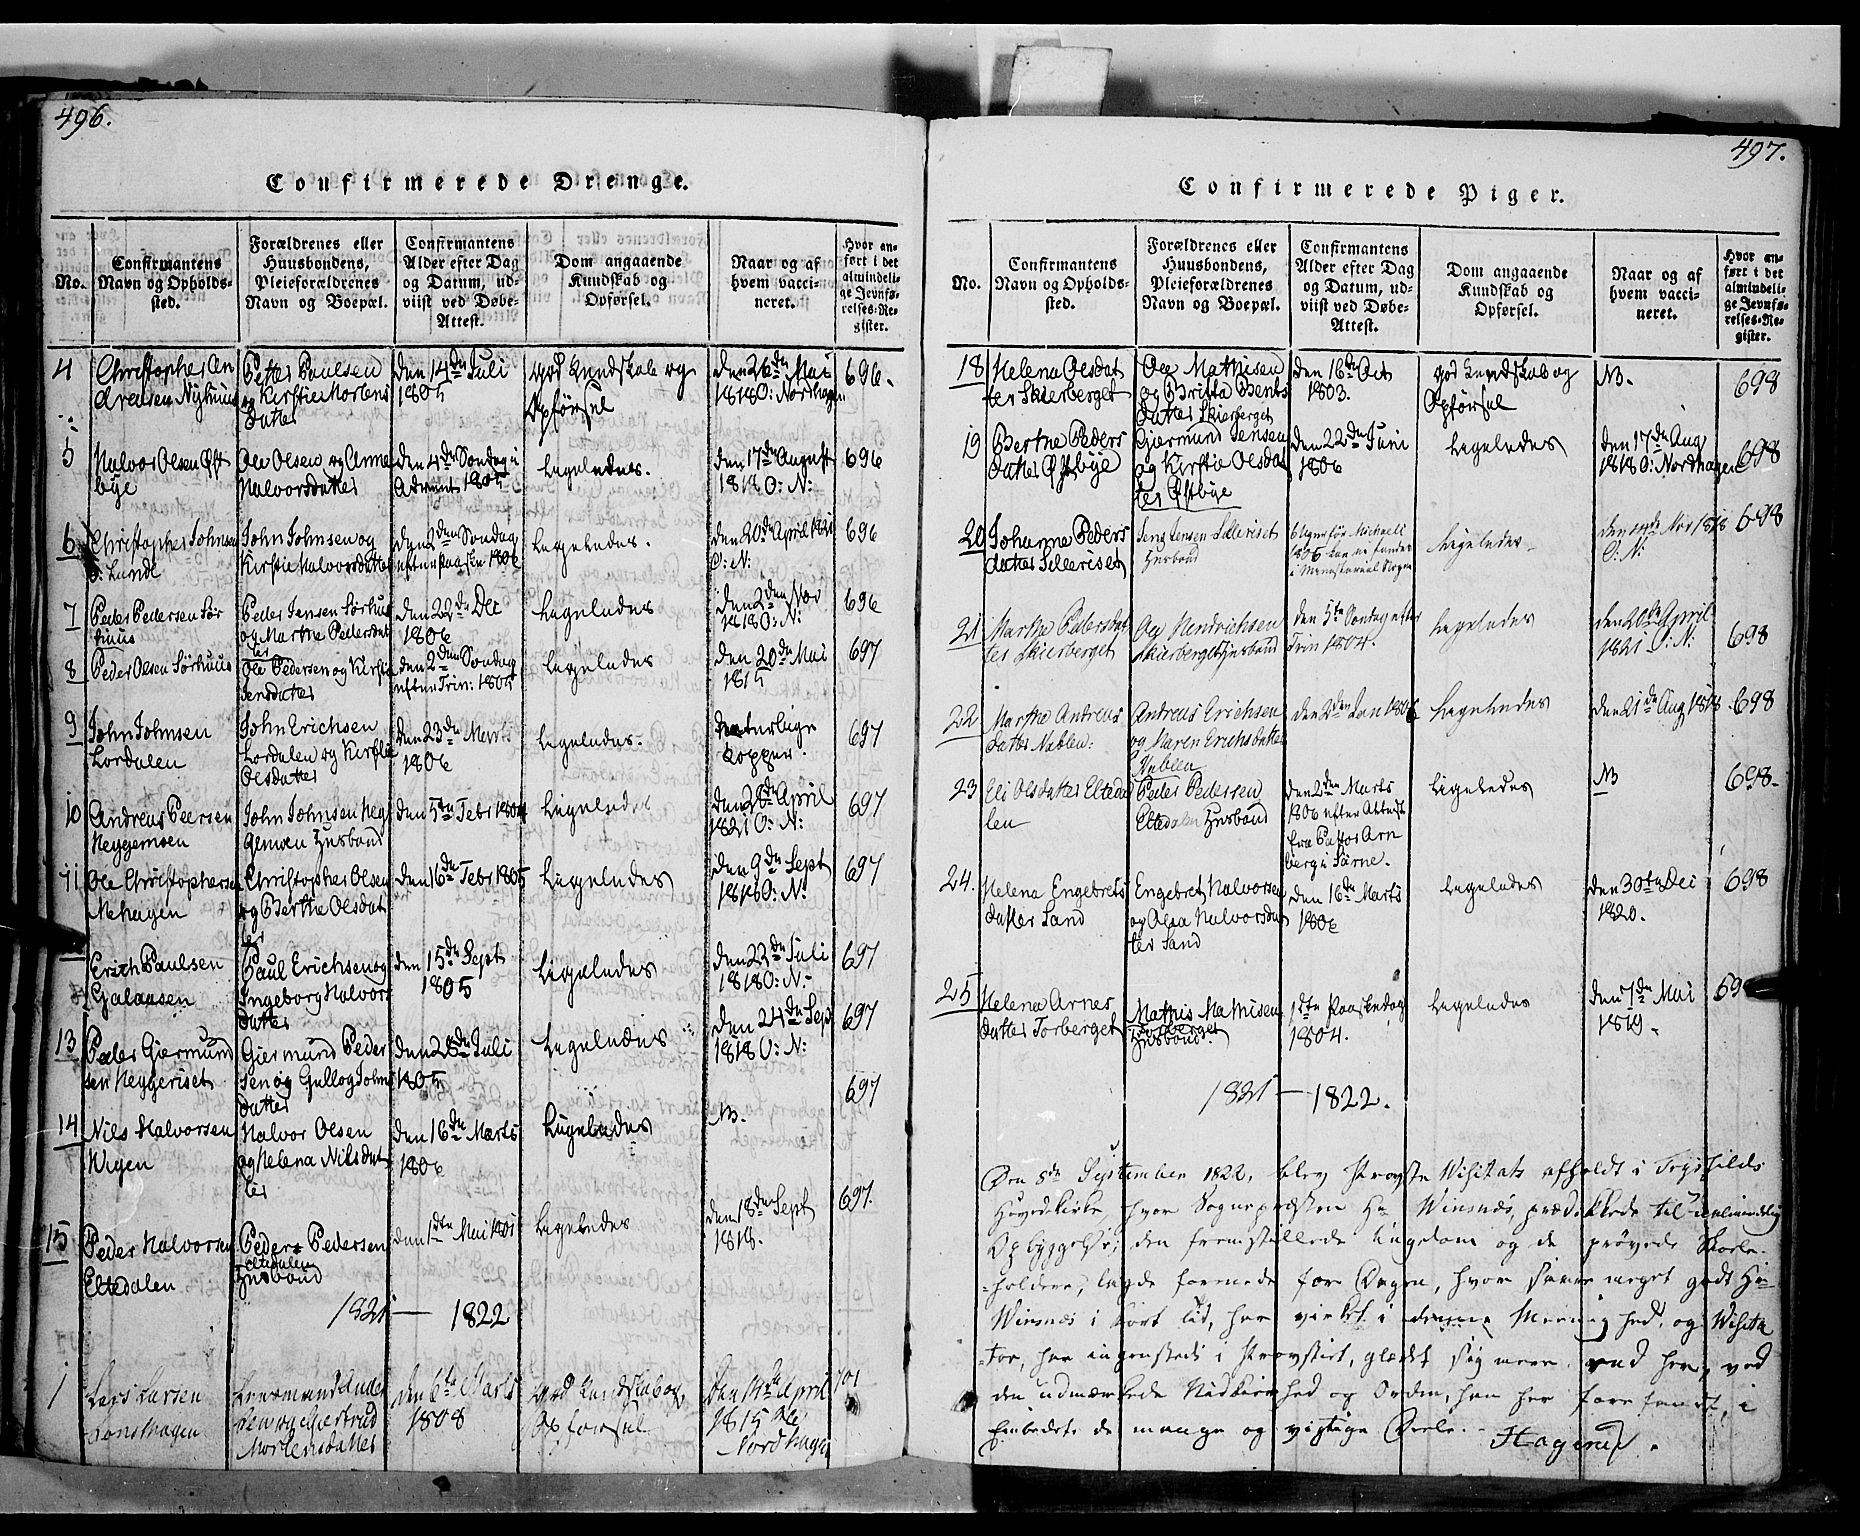 496.
Confirmerede Drenge.
No.
Confirmantens
Navn og Opholds-
sted.
Forældrenes eller
Huusbondens,
Pleieforældrenes
Navn og Boepæl.
Confirmantens
Alder efter Dag
og Datum, ud-
viist ved Døbe-
Attest.
Dom angaaende
Kundskab og
Opførsel.
Naar og af
hvem vacci-
neret.
Hvor an-
ført i det
almindeli-
ge Jevnfø-
relses-Re-
gister.
4
Christopher An
dreasen Nyhuus
Petter Paulsen
og Kirstie Mortens
datter
den 14de Juli
1805
god Kundskab og
Opførsel
den 26de Mai
1818 O: Nordhagen
696.
5
Halvor Olsen Øst
bye
Ole Olsen og Anne
Halvorsdatter
den 4de Søndag i
Advent 1805
Ligeledes.
den 17de August
1818 O: N:
696
6
Christopher Johnsen
Lunde
John Johnsen og
Kirstie Halvorsdatter
den 2den Søndag
efter Paaske 1806
Ligeledes.
den 20de April 1821
O: N:
696
7
Peder Pedersen Sør
huus
Peder Jensen Sørhuus
og Marthe Pedersdat
ter
den 22de Dec
1806
Ligeledes
den 2den Nov
1818 O: N:
696
8
Peder Olsen Sørhuus
Ole Pedersen og Kirstie
Jensdatter
den 2den Søndag
efter Trin: 1805
Ligeledes
den 20de Mai
1815
697
9
John Johnsen
Lordalen
John Erichsen
Lordalen og Kirstie
Olsdatter
den 23de Marts
1806
Ligeledes.
naturlige
Kopper.
697
10
Andreas Peersen
Heggemoen
John Johnsen Heg
gemoen Husbond
den 5te Febr 1804
Ligeledes
den 28de April
1821 O: N:
697
11
Ole Christophersen
Mehagen
Christopher Olsen
og Berthe Olsdat
ter
den 16de Febr 1805
Ligeledes
den 9de Sept
1818 O: N:
697
Erich Paulsen
Galaasen
Paul Erichsen og
Ingeborg Halvors
datter
den 15de Sept
1805
Ligeledes
den 23de Juli
1818 O: N:
697
13
Peder Giermund
sen Heggeriset
Giermund Peder
sen og Gullog Johns
datter
den 28de Juli
1805
Ligeledes
den 24de Sept
1818 O: N:
697
14
Nils Halvorsen
Wigen
Halvor Olsen
og Helena Nilsdat
ter
den 16de Marts
1806
Ligeledes
N.
697
15
Peder Halvorsen
Eltedalen
Peder Pedersen
Eltedalen
Husbond
den 1ste Mai 1801
Ligeledes
den 18de Sept
1818.
697.
1821 — 1822
1
Lars Larsen
den 6te Marts
1808
god Kundskab og
Opførsel
den 14de April
1815 O:
Nordhagen
701
497.
Confirmerede Piger.
No.
Confirmantens
Navn og Opholds-
sted.
Forældrenes eller
Huusbondens,
Pleieforældrenes
Navn og Boepæl.
Confirmantens
Alder efter Dag
og Datum, ud-
viist ved Døbe-
Attest.
Dom angaaende
Kundskab og
Opførsel.
Naar og af
hvem vacci-
neret.
Hvor an-
ført i det
almindeli-
ge Jevnfø-
relses-Re-
gister.
18
Helena Olsdat
ter Skierberget
Ole Mathisen
og Britta Bents
datter Skierberget
den 16de Oct
1803.
god Kundskab og
Opførsel
N.
698
19
Berthe Peders
datter Østbye
Giermund Jensen
og Kirstie Olsdat
ter Østbye
den 22de Juni
1806
Ligeledes
den 17de Aug
1818 O: Nordhagen
698
20
Johanne Peders
datter Selleriset
Jens Jensen Selleriset
Husbond
6 Uger før Michaeli
Ligeledes
O: N:
698
21
Marthe Pedersdat
ter Skierberget
Ole Hendrichsen
Skierberget Husbond
den 5te Søndag efter
Trin 1804.
Ligeledes
den 20de April
1821 O: N:
698
22
Marthe Andreas
datter Nablen:
Andreas Erichsen
og Maren Erichsdatter
Nablen
den 2den Jan 1806
Ligeledes
den 21de Aug 1818
698
23
Eli Olsdatter Elteda
len
Peder Pedersen
Eltedalen Husbond
den 2den Marts
1806 efter Attest
fra Pastor Arn
berg i Særne.
Ligeledes
N
698.
24.
Helena Engebrets
datter Sand
Engebret Halvorsen
og Olea Halvorsdat
ter Sand
den 16de Marts
1806
Ligeledes
den 30te Dec
1820.
698
25
Helena Arnes
datter Torberget
Mathis Mathisen
Torberget
Husbond.
1ste Paaskedag
1804.
Ligeledes
den 7de Mai
1819.
69
1821 — 1822.
Den 8de September 1822, blev Provste Visitats afholdt i Trysilds
Hovedkirke, hvor Sognepræsten Hr Winsnes, prædikede til almindelig
Opbyggelse; den fremstillede Ungdom og de prøvede Skole-
holdere, lagde for Dagen, hvor meget godt Hr
Winsnes i kort tid, har virket i denne Menighed, og Visita
tor, har ingensteds i Provstiet, glædet sig mere end her, ved
den udmærkede Nidkierhed og Orden, han her forefandt, i
Embedets mange og vigtige Deele. Hagerup.